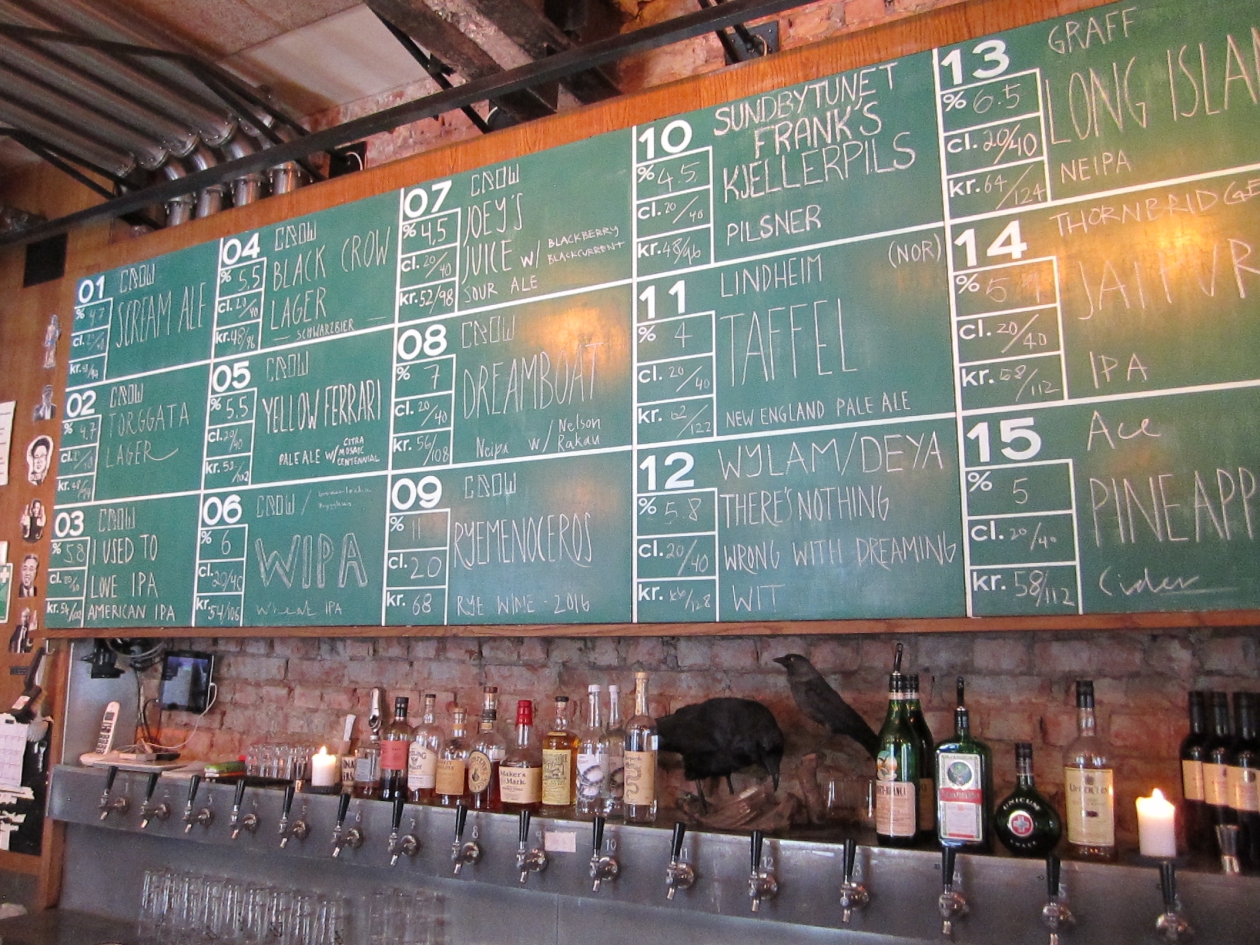 01
CROW
SCREAM ALE
% 4.7
cl. 20/40
kr.
02
CROW
TORGGATA
LAGER
% 4.7
cl.
kr.
03
CROW
I USED TO
LOVE IPA
AMERICAN IPA
% 5.8
cl. 20/40
kr. 54/
04
CROW
BLACK CROW
LAGER
SCHWARZBIER
% 5.5
cl. 20/40
kr. 48/96
05
CROW
YELLOW FERRARI
PALE ALE W/ CITRA
MOSAIC
CENTENNIAL
% 5.5
cl. 20/40
kr. 52/102
06
CROW /
WIPA
Wheat IPA
% 6
cl. 20/40
kr. 54/106
07
CROW
JOEY'S
JUICE W/ BLACKBERRY
BLACKCURRENT
SOUR ALE
% 4,5
cl. 20/40
kr. 52/98
08
CROW
DREAMBOAT
Neipa w/ Nelson
Rakau
% 7
cl. 20/40
kr. 56/108
09
CROW
RYEMENOCEROS
RYE WINE - 2016
% 11
cl. 20
kr. 68
10
SUNDBYTUNET
FRANK'S
KJELLERPILS
PILSNER
% 4.5
cl. 20/40
kr. 48/96
11
LINDHEIM (NOR)
TAFFEL
NEW ENGLAND PALE ALE
% 4
cl. 20/40
kr. 62/122
12
WYLAM/DEYA
THERE'S NOTHING
WRONG WITH DREAMING
WIT
% 5.8
cl. 20/40
kr. 66/128
13
GRAFF
LONG ISLAN
NEIPA
% 6.5
cl. 20/40
kr. 64/124
14
THORNBRIDGE
JAIPUR
IPA
% 5.9
cl. 20/40
kr. 58/112
15
Ace
PINEAPP
Cider
% 5
cl. 20/40
kr. 58/112
Maker's
Mark
UNICUM
10